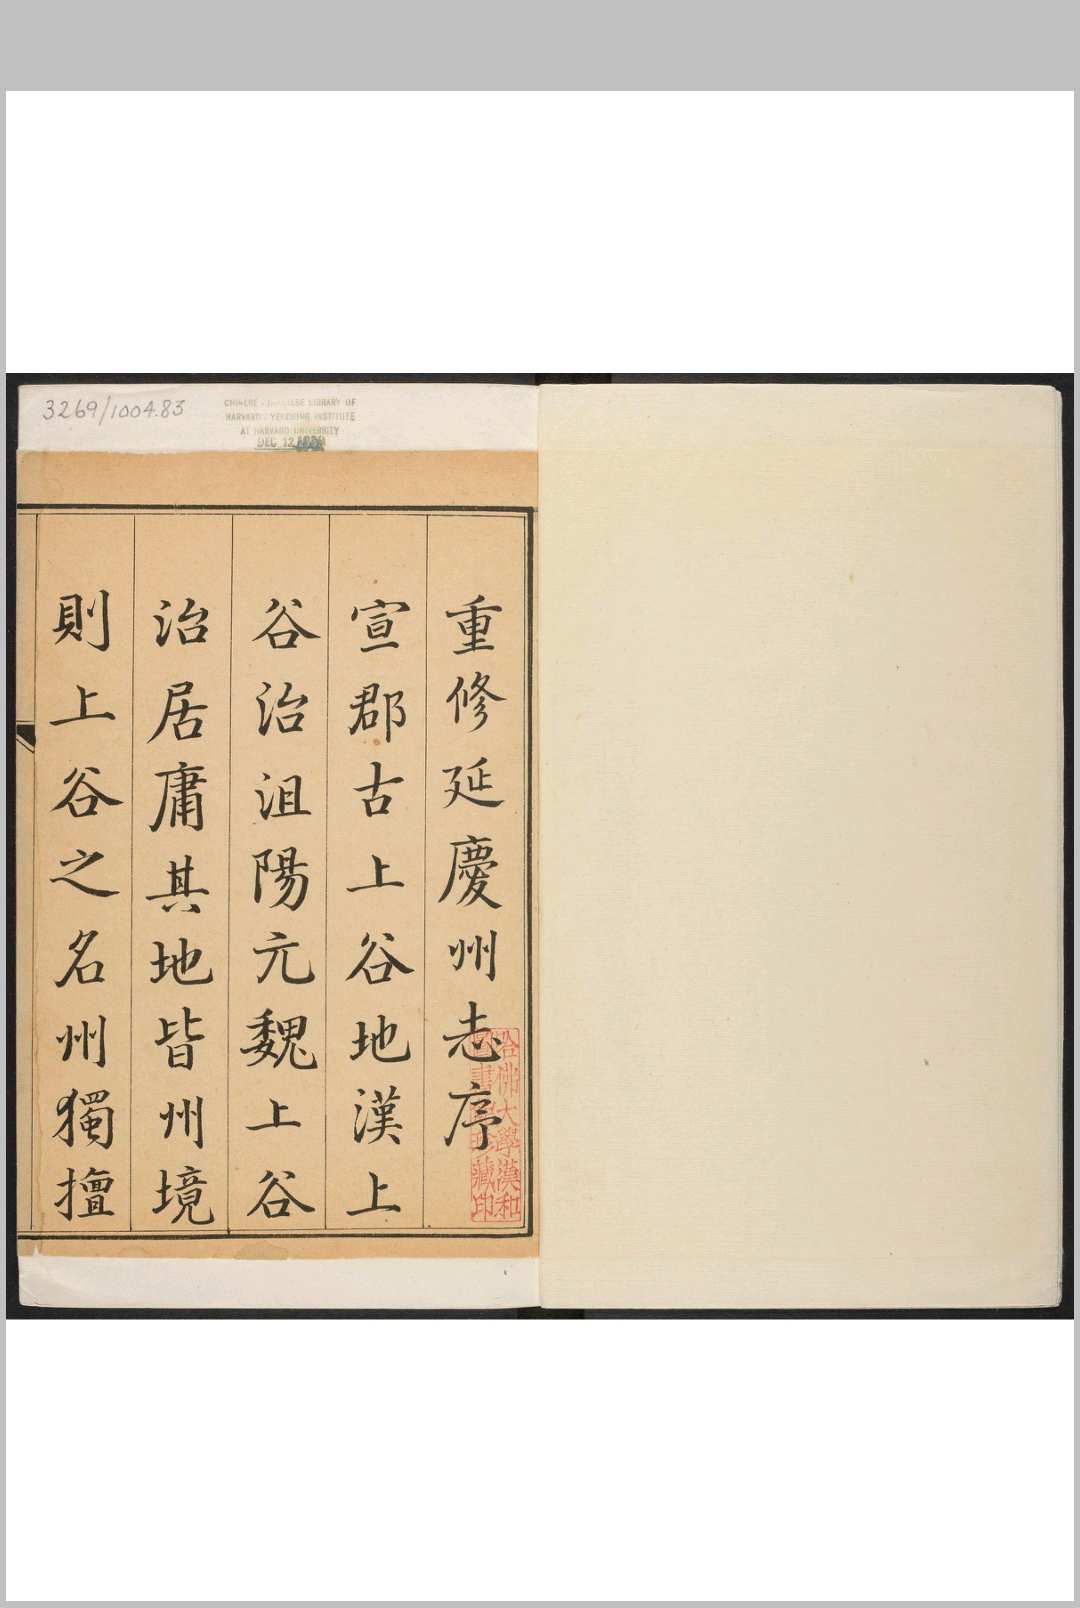 3269/1004.83
CHINESE - JAPANESE LIBRARY OF
HARVARD - YENCHING INSTITUTE
AT HARVARD UNIVERSITY
DEC 12
重修延慶州志序
宣郡古上谷地漢上
谷治沮陽元魏上谷
治居庸其地皆州境
則上谷之名州獨擅
哈佛大學漢和
圖書館珍藏印